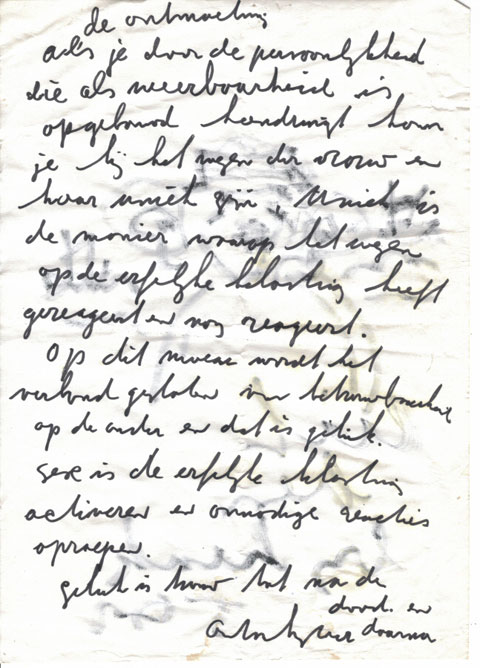 de ontmoeting
als je door de persoonlijkheid
die als weerbaarheid is
opgebouwd heendringt kom
je bij het wezen der vrouw en
haar uniek zijn. Uniek is
de manier waarop het wezen
op de erfelijke belasting heeft
gereageert en nog reageert.
Op dit niveau wordt het
verbond gesloten van betrouwbaarheid
op de ander en dat is geluk.
sexe is de erfelijke belasting
activeren en onnodige reacties
oproepen.
geluk is trouw tot na de
dood. en
daarna